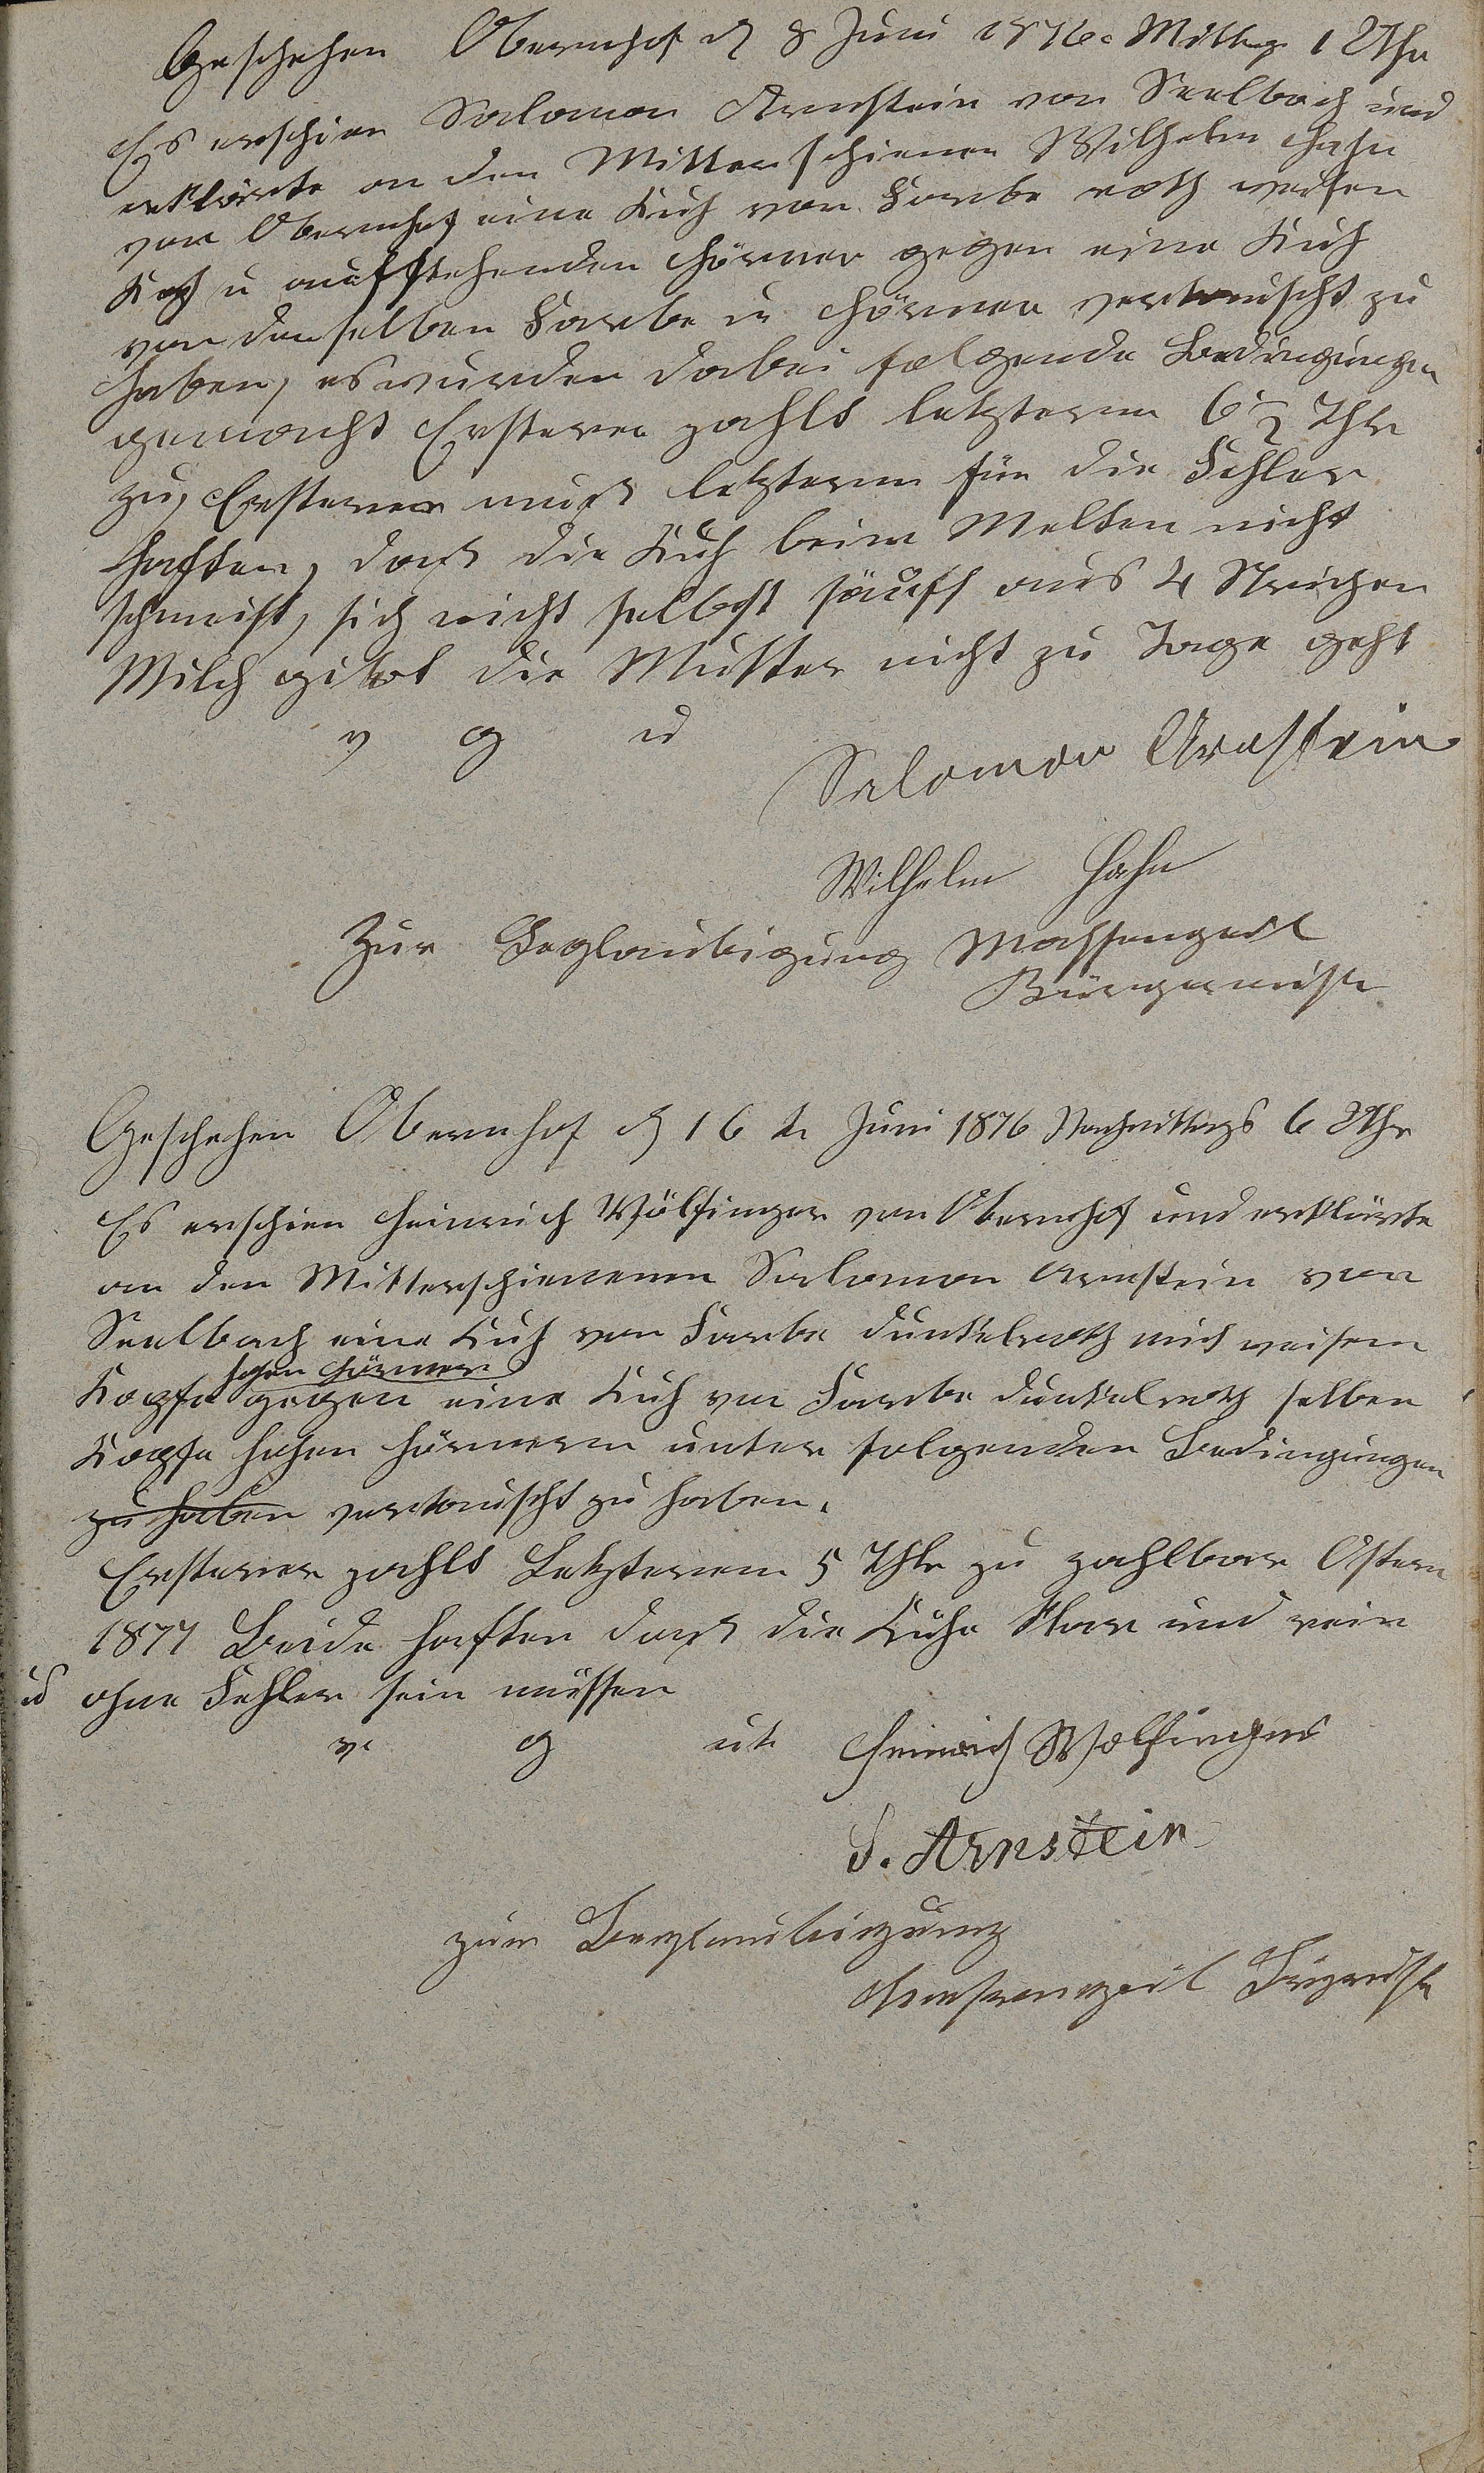 Geschehen Obernhof d 8 Juni 1876. Mittags 1 Uhr
Es erschien Salomon Arnstein von Seelbach und
erklärte an den Mitterschienen Wilhelm Hahn
von Obernhof eine Kuh von Farbe roth weisen
Kopf u aufstehenden Hörner gegen eine Kuh
von denselben Farbe u Hörner vertauscht zu
haben, es wurden dabei folgende Bedingungen
gemacht Ersterer zahlt letzterem 6½ Thlr
zu, Ersterer muß letzterem für die Fehler
haften, daß die Kuh beim Melken nicht
schmeist, sich nicht selbst säuft aus 4 Strichen
Milch gibt die Mutter nicht zu Tage geht
v g u
Salomon Arnstein
Wilhelm Hahn
Zur Beglaubigung Massengeil
Bürgermeister
Geschehen Obernhof d 16 t Juni 1876 Nachmittags 6 Uhr
Es erschien Heinrich Wölfinger von Obernhof und erklärte
an den Mitterschienenen Salomon Arnstein von
Seelbach eine Kuh von Farbe dunkelroth mit weisem
hohen Hörner
Kopfe gegen eine Kuh von Farbe dunkelroth selben
Kopfe hohen Hörnern unter folgenden Bedingungen
zu haben vertauscht zu haben.
Ersterer zahlt Letzterem 5 Thlr zu zahlbar Ostern
1877 Beide haften daß die Kühe klar und rein
u ohne Fehler sein müssen
v. g u.
Heinrich Wolfinger
S. Arnstein
zur Beglaubigung
Massengeil Bürgermstr